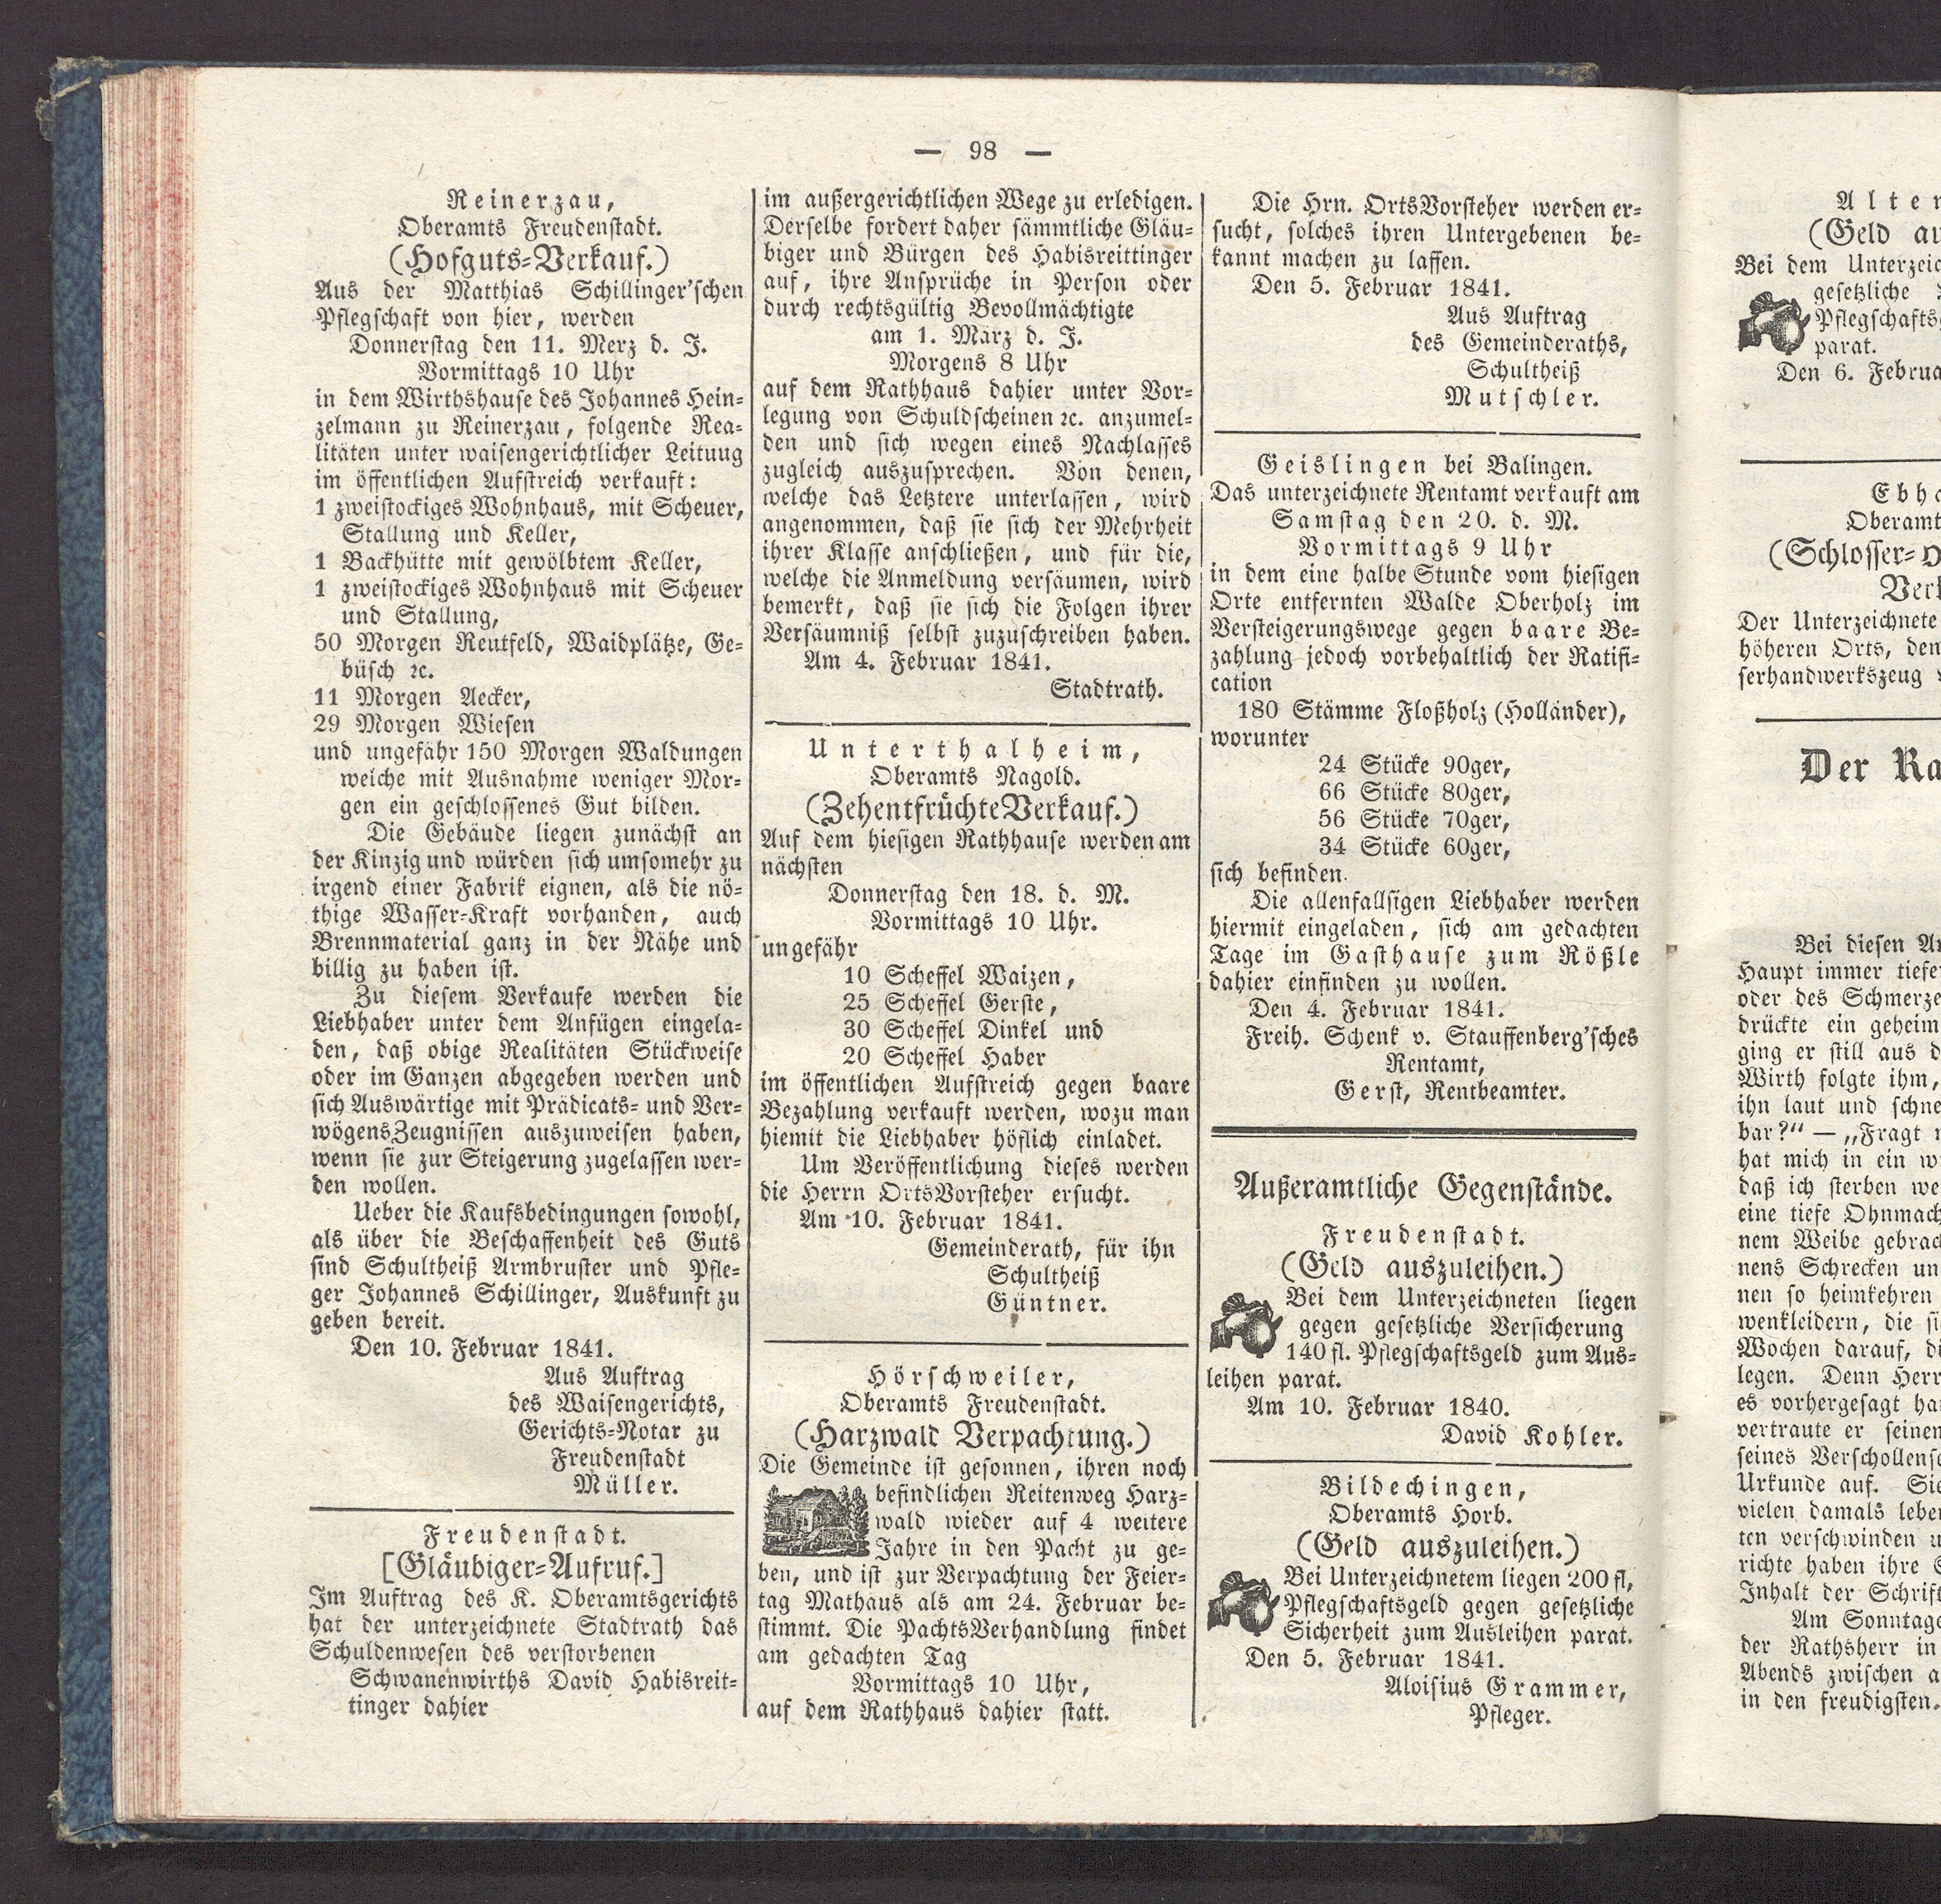 — 98 —
Reinerzau,
Oberamts Freudenstadt.
(Hofguts-Verkauf.)
Aus der Matthias Schillinger'schen
Pflegschaft von hier, werden
Donnerstag den 11. Merz d. J.
Vormittags 10 Uhr
in dem Wirthshause des Johannes Hein-
zelmann zu Reinerzau, folgende Rea-
litäten unter waisengerichtlicher Leituug
im öffentlichen Aufstreich verkauft:
1 zweistockiges Wohnhaus, mit Scheuer,
Stallung und Keller,
1 Backhütte mit gewölbtem Keller,
1 zweistockiges Wohnhaus mit Scheuer
und Stallung,
50 Morgen Reutfeld, Waidplätze, Ge-
büsch ꝛc.
11 Morgen Aecker,
29 Morgen Wiesen
und ungefähr 150 Morgen Waldungen
welche mit Ausnahme weniger Mor-
gen ein geschlossenes Gut bilden.
Die Gebäude liegen zunächst an
der Kinzig und würden sich umsomehr zu
irgend einer Fabrik eignen, als die nö-
thige Wasser-Kraft vorhanden, auch
Brennmaterial ganz in der Nähe und
billig zu haben ist.
Zu diesem Verkaufe werden die
Liebhaber unter dem Anfügen eingela-
den, daß obige Realitäten Stückweise
oder im Ganzen abgegeben werden und
sich Auswärtige mit Prädicats- und Ver-
wögensZeugnissen auszuweisen haben,
wenn sie zur Steigerung zugelassen wer-
den wollen.
Ueber die Kaufsbedingungen sowohl,
als über die Beschaffenheit des Guts
sind Schultheiß Armbruster und Pfle-
ger Johannes Schillinger, Auskunft zu
geben bereit.
Den 10. Februar 1841.
Aus Auftrag
des Waisengerichts,
Gerichts-Notar zu
Freudenstadt
Müller.
Freudenstadt.
[Gläubiger-Aufruf.]
Im Auftrag des K. Oberamtsgerichts
hat der unterzeichnete Stadtrath das
Schuldenwesen des verstorbenen
Schwanenwirths David Habisreit-
tinger dahier
im außergerichtlichen Wege zu erledigen.
Derselbe fordert daher sämmtliche Gläu-
biger und Bürgen des Habisreittinger
auf, ihre Ansprüche in Person oder
durch rechtsgültig Bevollmächtigte
am 1. März d. J.
Morgens 8 Uhr
auf dem Rathhaus dahier unter Vor-
legung von Schuldscheinen ꝛc. anzumel-
den und sich wegen eines Nachlasses
zugleich auszusprechen. Von denen,
welche das Letztere unterlassen, wird
angenommen, daß sie sich der Mehrheit
ihrer Klasse anschließen, und für die,
welche die Anmeldung versäumen, wird
bemerkt, daß sie sich die Folgen ihrer
Versäumniß selbst zuzuschreiben haben.
Am 4. Februar 1841.
Stadtrath.
Unterthalheim,
Oberamts Nagold.
(ZehentfrüchteVerkauf.)
Auf dem hiesigen Rathhause werden am
nächsten
Donnerstag den 18. d. M.
Vormittags 10 Uhr.
ungefähr
10 Scheffel Waizen,
25 Scheffel Gerste,
30 Scheffel Dinkel und
20 Scheffel Haber
im öffentlichen Aufstreich gegen baare
Bezahlung verkauft werden, wozu man
hiemit die Liebhaber höflich einladet.
Um Veröffentlichung dieses werden
die Herrn OrtsVorsteher ersucht.
Am 10. Februar 1841.
Gemeinderath, für ihn
Schultheiß
Güntner.
Hörschweiler,
Oberamts Freudenstadt.
(Harzwald Verpachtung.)
Die Gemeinde ist gesonnen, ihren noch
befindlichen Reitenweg Harz-
wald wieder auf 4 weitere
Jahre in den Pacht zu ge-
ben, und ist zur Verpachtung der Feier-
tag Mathäus als am 24. Februar be-
stimmt. Die PachtsVerhandlung findet
am gedachten Tag
Vormittags 10 Uhr,
auf dem Rathhaus dahier statt.
Die Hrn. OrtsVorsteher werden er-
sucht, solches ihren Untergebenen be-
kannt machen zu lassen.
Den 5. Februar 1841.
Aus Auftrag
des Gemeinderaths,
Schultheiß
Mutschler.
Geislingen bei Balingen.
Das unterzeichnete Rentamt verkauft am
Samstag den 20. d. M.
Vormittags 9 Uhr
in dem eine halbe Stunde vom hiesigen
Orte entfernten Walde Oberholz im
Versteigerungswege gegen baare Be-
zahlung jedoch vorbehaltlich der Ratifi-
cation
180 Stämme Floßholz (Holländer),
worunter
24 Stücke 90ger,
66 Stücke 80ger,
56 Stücke 70ger,
34 Stücke 60ger,
sich befinden.
Die allenfallsigen Liebhaber werden
hiermit eingeladen, sich am gedachten
Tage im Gasthause zum Rößle
dahier einfinden zu wollen.
Den 4. Februar 1841.
Freih. Schenk v. Stauffenberg'sches
Rentamt,
Gerst, Rentbeamter.
Außeramtliche Gegenstände.
Freudenstadt.
(Geld auszuleihen.)
Bei dem Unterzeichneten liegen
gegen gesetzliche Versicherung
140 fl. Pflegschaftsgeld zum Aus-
leihen parat.
Am 10. Februar 1840.
David Kohler.
Bildechingen,
Oberamts Horb.
(Geld auszuleihen.)
Bei Unterzeichnetem liegen 200 fl,
Pflegschaftsgeld gegen gesetzliche
Sicherheit zum Ausleihen parat.
Den 5. Februar 1841.
Aloisius Grammer,
Pfleger.
(Geld
Bei dem
gesetzliche
parat.
Den 6.
Oberamt
(Schlosser-
Der Unterzeichnete
höheren Orts, den
serhandwerkszeug
Der
Bei diesen
Haupt immer
oder des
drückte ein geheim
ging er still aus
Wirth folgte ihm,
ihn laut und
bar?“ — „Fragt
hat mich in ein
daß ich sterben
eine tiefe
nem Weibe
nens Schrecken
nen so heimkehren
wenkleidern, die
Wochen darauf,
legen. Denn
es vorhergesagt
vertraute er
seines
Urkunde auf.
vielen damals
ten verschwinden
richte haben ihre
Inhalt der
Am
der Rathsherr in
Abends zwischen
in den freudigsten